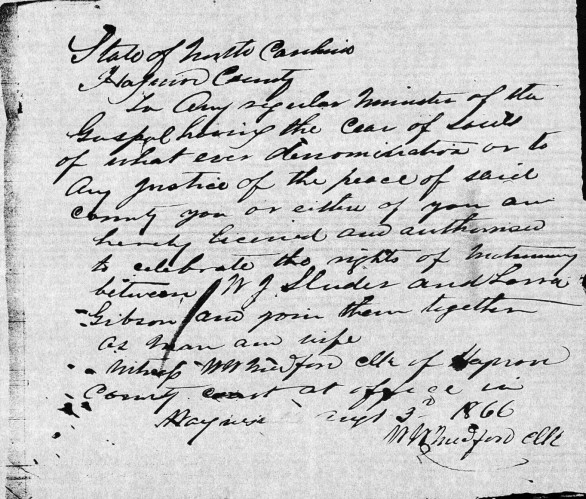 State of North Carolina
Haywood County
To Any regular Minister of the
Gospel having the cear of souls
of what ever denomination or to
Any Justice of the peace of said
County you or either of you are
hereby licened and authorised
to celebrate the rights of Matrimony
between W J. Sluder and
Gibson and join them together
as man and wife
Witness W W Medford clk of
County court at office in
Augt 3d 1866
W W Medford clk